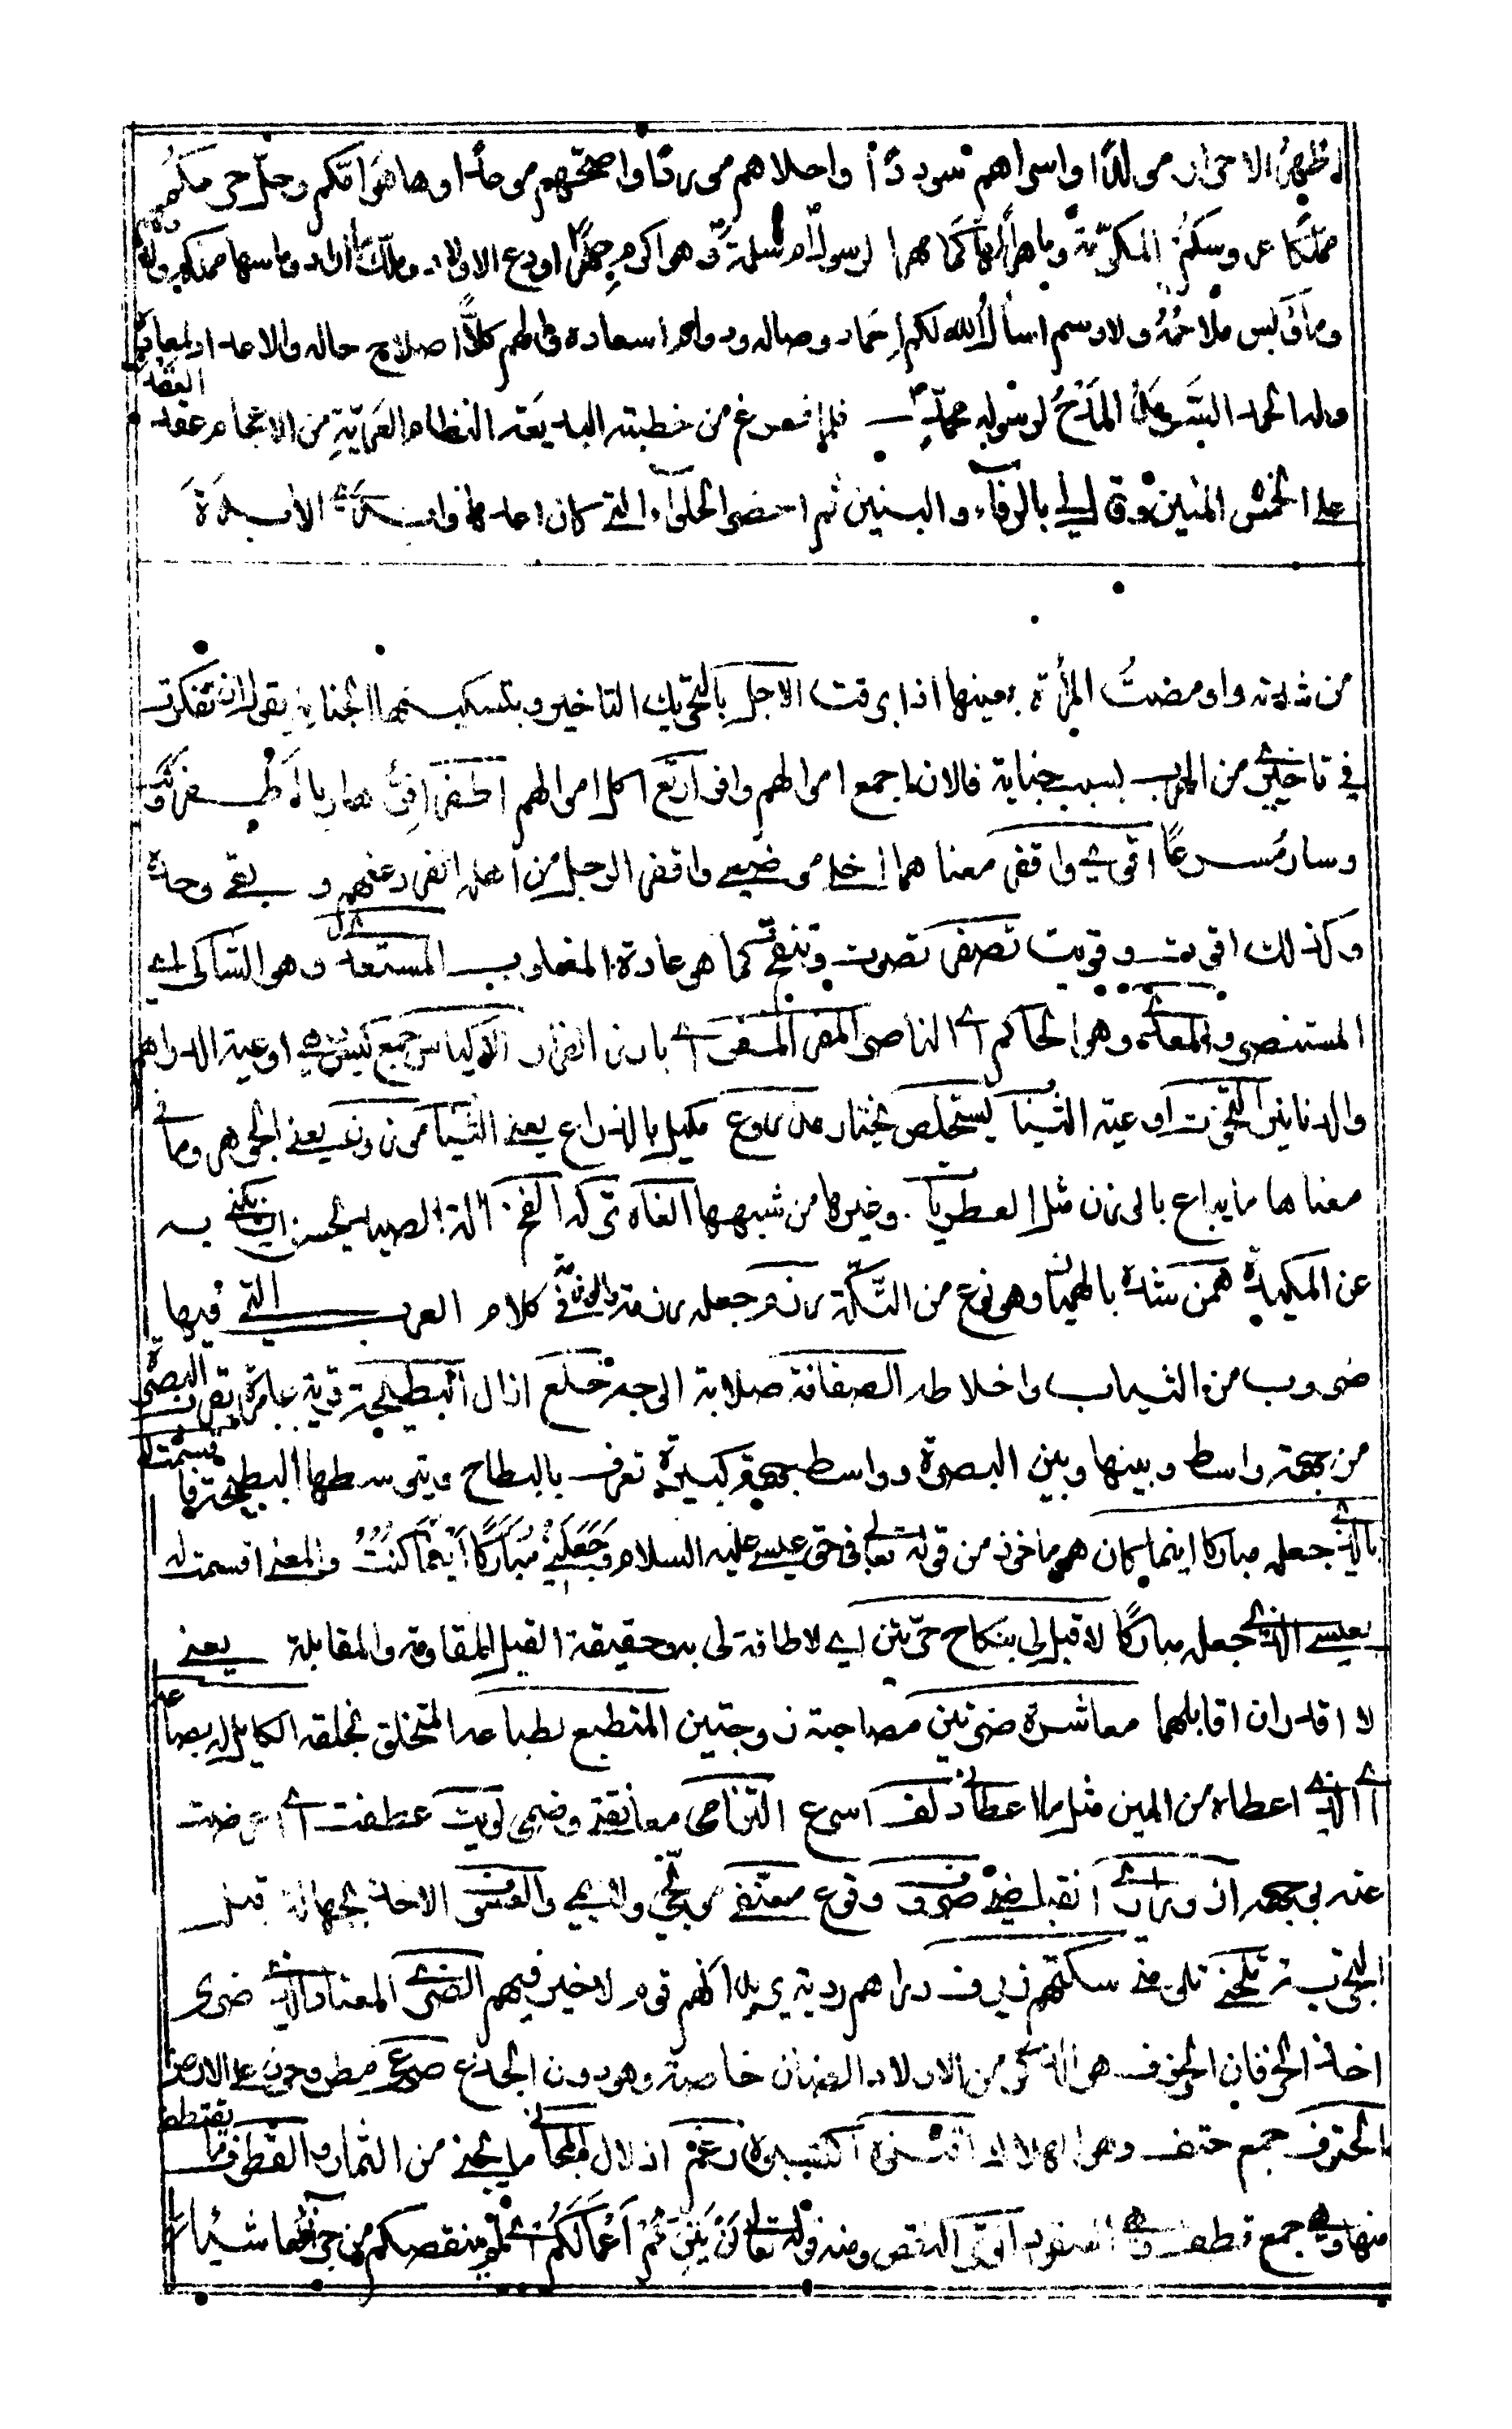 اطهر الاحرار مولدا واسراهم سوددا واحلاهم موردا واصحهم موعدا وها هو امكم وحل حرمكم
مملكا عروسكم المكرمة وماهرا لها كما مهر الرسول ام سلمة وهو اكرم صهر اودع الاولاد وملك ما اراد وما سها مملكه ولا وهم
ولا وكس ملاحمه ولا وصم اسأل الله لكم احماد وصاله ودوام اسعاده والهم كلا اصلاح حاله والاعداد لمعاده
وله الحمد السرمد والمدح لرسوله محمد فلما فرغ من خطبته البديعة النظام العرية من الاعجام عقد العقد
على الخمس المئين وقال لي بالرفاء والبنين ثم احضر الحلواء التي كان اعدها وابدى الآبدة
من شدته واومضت المرأة بعينها اذا برقت الاجل بالتحريك التاخير وبتسكينها الجناية يقول ان تفكرت
في تاخيري من الهرب بسبب جناية فالان اجمع اموالهم وافرا رتع اكل اموالهم اظفر افوز
وسار مسرعا اقوى واقفر معناهما اخلى موضعي واقفر الرجل من اهله انفرد عنهم وبقي وحده
وكذلك اقوت وقويت تصفر تصوت وتنفخ كما هو عادة المغلوب المستعدى وهو الشاكي اي
المستنصر والمعدى وهو الحاكم اي الناصر المفر المنفر اي بادر الفرار الاكياس جمع كيس وهي اوعية الدراهم
والدنانير التخوت اوعية الثياب يستخلص يختار مذروع مكيل بالذراع يعني الثياب موزون يعني الجوهر وما في
معناها ما يباع بالوزن مثل العطريات وغيرها من شبهها الغاه تركه الفخ آلة الصيد يحسن ان يكنى به
عن المكيدة همين شده بالهميان وهو نوع من التكة رزم جعله رزمة والرزمة في كلام العرب التي فيها
ضروب من الثياب واخلاط الصفاقة صلابة الوجه خلع ازال البطيحة قرية عامرة بقرب البصرة
من جهة واسط وبينها وبين البصرة وواسط جهة كبيرة تعرف بالبطاح ويتوسطها البطيحة قسمت له
بالذي جعله مباركا اينما كان هو ماخوذ من قوله تعالى في حق عيسى عليه السلام وجعلني مباركا اينما كنت والمعنى اقسمت له
بعيسى الذي جعله مباركا لا قبل لي بنكاح حرتين اي لا طاقة لي به وحقيقة القبل المقاومة والمقابلة يعني
لا اقدر ان اقابلهما معاشرة ضرتين مصاحبة زوجتين المتطبع بطباعه المتخلق بخلقه الكايل له بصاعه
اي الذي اعطاه من المين مثل ما اعطاه دلف اسرع التزامي معانقتي وضمي لويت عطفت اي اعرضت
عنه بوجهي ازورار اي انقباض صروف وقوع معنفي موبخي ولائمي والعنف الاخذ بجهالة قبل
التجربة تلحني تلمني سكتهم زيوف دراهم ردية يريد انهم قوم لا خير فيهم الضري المعتاد الذي ضري
اخذ الخرفان الخروف هو الذكر من الاولاد الضان خاصة وهو دون الجذع صرعى مطروحون على الارض
الحتوف جمع حتف وهو الهلاك اقتنوه اكتسبوه رغم اذلال المجاني ما يجنى من الثمار والقطوف ما يقتطف
منها وهي جمع قطف وهي العنقود اوتر انقص ومنه قوله تعالى ولن يتركم اعمالكم اي لم ينقصكم من جزائها شيئا